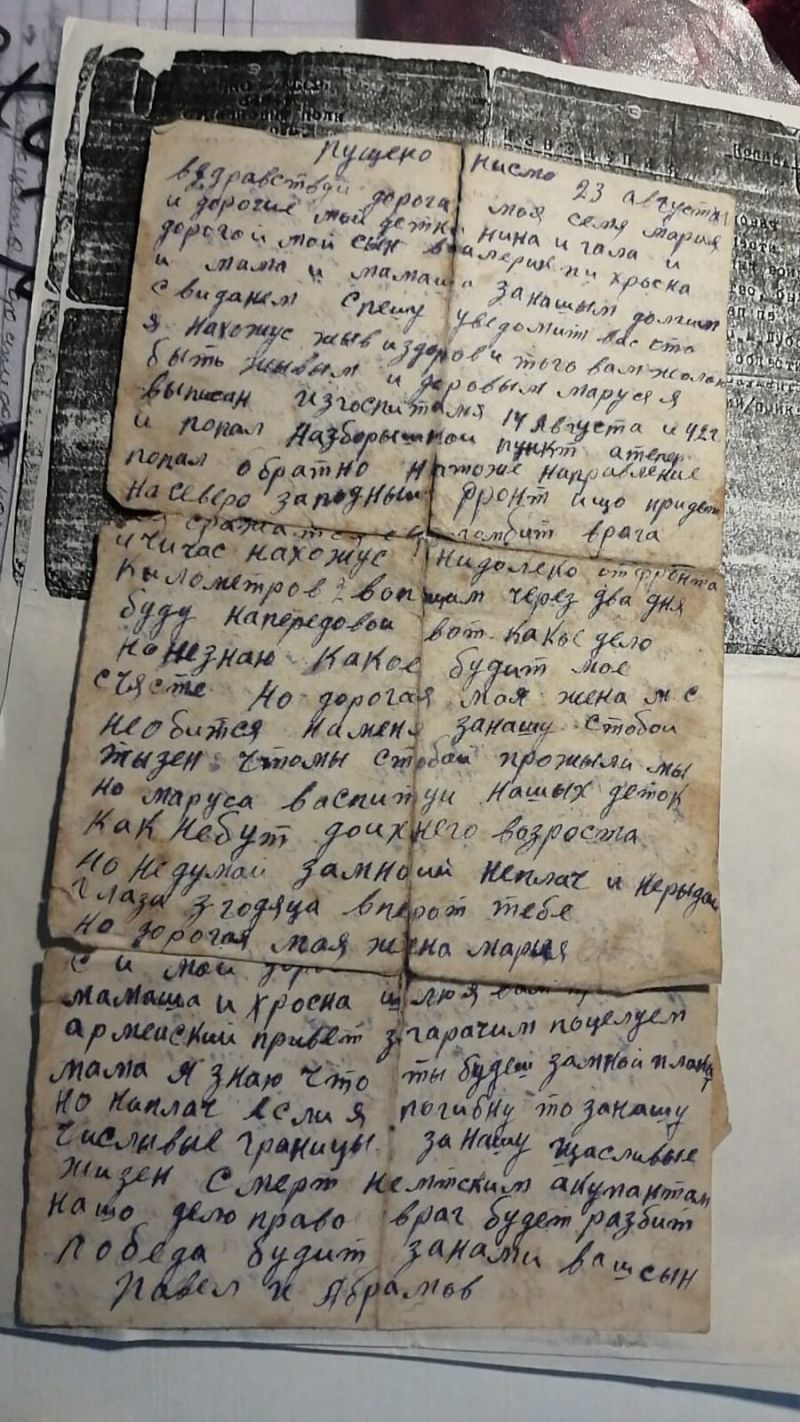 Пущено письмо 23 августа
вздравствуй дорога моя семя мария
и дорогие мои детки нина и гала и
дорогой мой сын валерик и хросна
и мама и мамаша занашым долгим
свиданем спешу уведомит вас что
я нахожус жыв издоров и того вам жолаю
быть жывым и доровым маруся я
выписан изгоспиталя 14 Августа и 42 г
и попал назборышной пункт атепер
попал обратно натоже направление
на северо западный фронт ищо придет
сражатся громбит врага
и чичас нахожус нидолеко от фронта
кылометров 2 вопщим через два дня
буду напередовой вот какое дело
нонезнаю какое будит мое
счясте но дорогая моя жена м с
необитса наменя занашу стобой
жызен чтомы стобой прожыли мы
но маруса васпитуи нашых деток
как небут доихнего возроста
но недумай замной неплач и нерыдай
глаза згодяца вперот тебе
но дорогая мая жена мария
с и мои
мамаша и хросна шлю я вам
армейский привет згарачим поцелуем
мама я знаю что ты будеш замной плакат
но наплач если я погибну то занашу
числивые границы занашу щасливые
жизен смерт немтским акупантам
нашо дело право враг будет разбит
победа будит занами вашсын
Павел и Абрамов